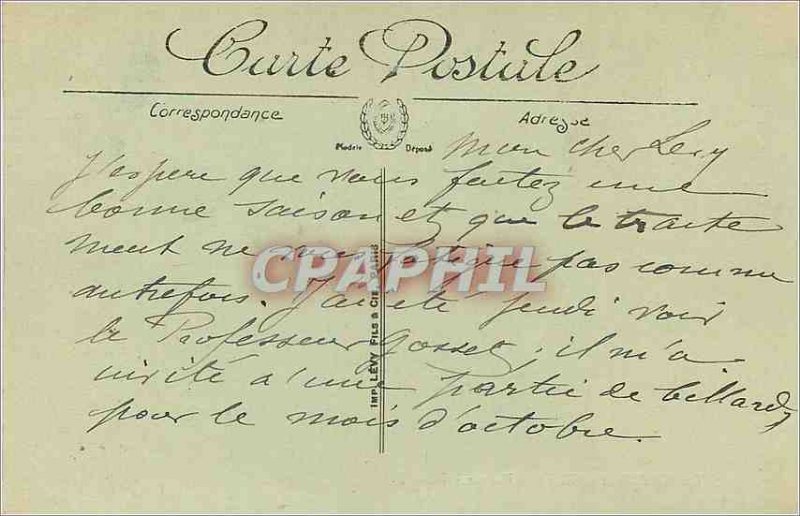 Carte Postale
Correspondance
Adresse
Modèle Déposé
Mon cher Levy
J'espère que vous faitez une
bonne saison et que le traite
ment ne vous fatigue pas comme
autrefois. J'ai été jeudi voir
le Professeur Gosset; il m'a
invité a une partie de billard
pour le mois d'octobre.
IMP. LÉVY FILS & CIE PARIS
CPAPHIL